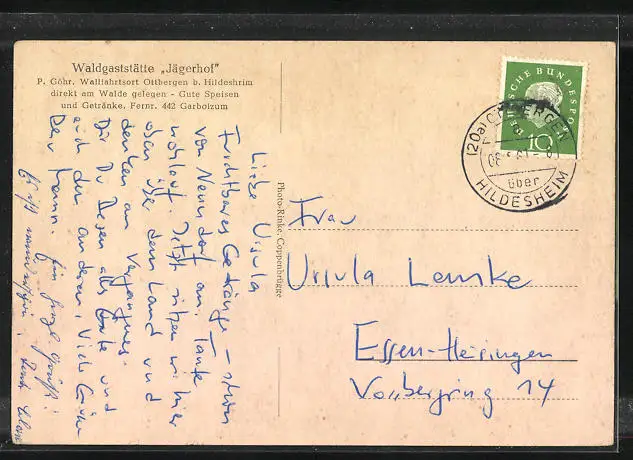 Waldgaststätte „Jägerhof"
P. Göhr. Wallfahrtsort Ottbergen b. Hildeshrim
direkt am Walde gelegen - Gute Speisen
und Getränke. Fernr. 442 Garbolzum
Photo-Rinke, Coppenbrügge
DEUTSCHE BUNDESPOST
10
(20a) OTTBERGEN
über
HILDESHEIM
Liebe Ursula
Furchtbares Gedränge – schon
von Nenndorf an. Tante
wohlauf. Jetzt sitzen wir hier
oben über dem Land und
denken an Vergangnes.
Dir Dies alles Gute und
auch den anderen. Viele Grüße
Dein Hann.
Frau
Ursula Lemke
Essen-Heisingen
Vosberging 14